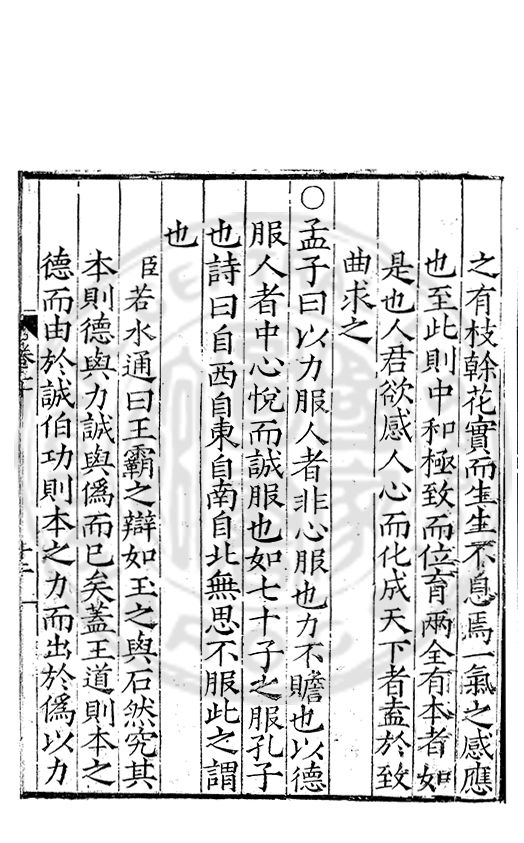 之有枝榦花實而生生不息焉一氣之感應
也至此則中和極致而位育兩全有本者如
是也人君欲感人心而化成天下者盍於致
曲求之
○孟子曰以力服人者非心服也力不贍也以德
服人者中心悅而誠服也如七十子之服孔子
也詩曰自西自東自南自北無思不服此之謂
也
臣若水通曰王霸之辯如玉之與石然究其
本則德與力誠與僞而已矣蓋王道則本之
德而由於誠伯功則本之力而出於僞以力